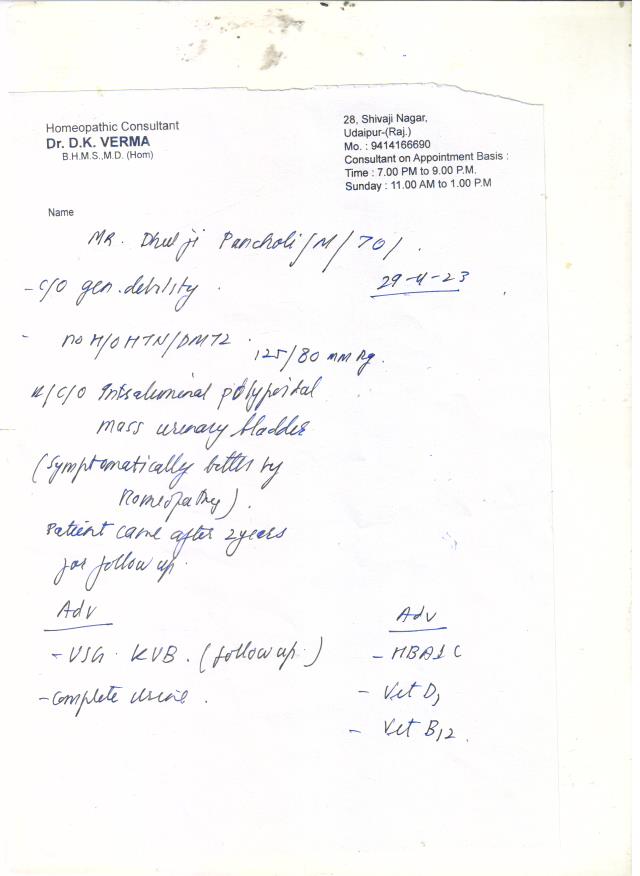 Homeopathic Consultant
Dr. D.K. VERMA
B.H.M.S.,M.D. (Hom)
28, Shivaji Nagar,
Udaipur-(Raj.)
Mo. : 9414166690
Consultant on Appointment Basis :
Time : 7.00 PM to 9.00 P.M.
Sunday : 11.00 AM to 1.00 P.M
Name
MR. Dhulji Pancholi/M/70/.
29-4-23
- C/O gen. debility.
- no H/O HTN/DMT2.
125/80 mm Hg.
K/C/O Intraluminal polypoidal
mass urinary bladder
(Symptomatically better by
Homeopathy).
Patient came after 2 years
for follow up.
Adv
- USG. KUB. (follow up.)
- Complete Urine.
Adv
- HBA1C
- Vit D3
- Vit B12.